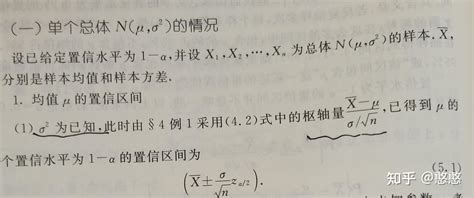 (一) 单个总体 N(μ,σ²)的情况
设已给定置信水平为1-α,并设 X₁,X₂,…,Xₙ 为总体 N(μ,σ²)的样本.X̄,
分别是样本均值和样本方差.
1. 均值 μ 的置信区间
(1) σ² 为已知,此时由§4例1采用(4.2)式中的枢轴量 (X̄-μ)/(σ/√n),已得到 μ 的
个置信水平为1-α的置信区间为
(X̄ ± σ/√n z_{α/2}). (5.1)
知乎 @悠悠